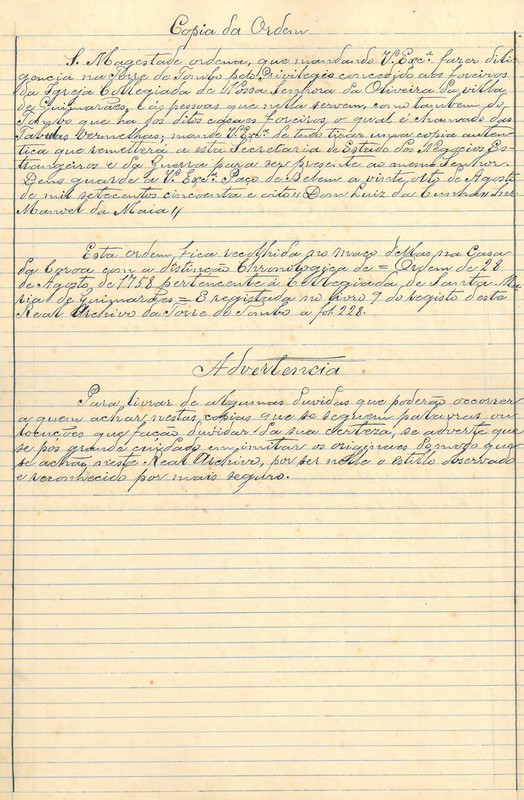 Copia da Ordem
S. Magestade ordena, que mandando V. Exc.ª fazer dili-
gencia na Torre do Tombo pelo Privilegio concedido aos foreiros
da Igreja Collegiada de Nossa Senhora da Oliveira da villa
de Guimarães, e ás pessoas que nella servem, como tambem do
Tombo que ha dos ditos cazaes foreiros, o qual é chamado das
Tabuas Vermelhas; mande V. Exc.ª de tudo tirar uma copia auten-
tica que remetterá a esta Secretaria de Estado dos Negocios Es-
trangeiros e da Guerra para ser presente ao mesmo Senhor.
Deus guarde a V. Exc.ª Paço de Belem a vinte oito de Agosto
de mil setecentos cincoenta e oito // Dom Luiz da Cunha // Snr.
Manoel da Maia //
Esta ordem fica recolhida no maço dellas na Casa
da Corôa com a distincção Chronologica de = Ordem de 28
de Agosto de 1758 pertencente á Collegiada de Santa Ma-
ria de Guimarães = E registada no livro 9 do registo deste
Real Archivo da Torre do Tombo a fol 228.
Advertencia
Para livrar de algumas duvidas que poderão occorrer
a quem achar nestas copias que se seguem palavras ou
locuções que fação duvidar da sua certeza, se adverte que
se pos grande cuidado em imitar os originaes do modo que
se achão neste Real Archivo, por ser nelle o estilo observado
e reconhecido por mais seguro.